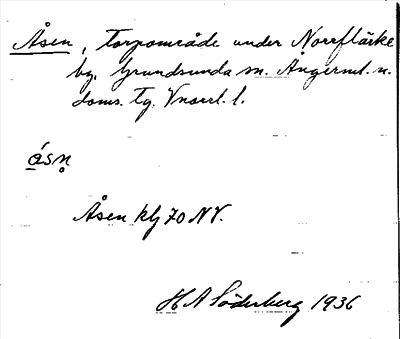 Åsen, torpområde under Norrflärke
by, Grundsunda sn. Ångerml. n.
doms. tg. Vnorrl. l.
ásṇ
Åsen klg 70 NV.
H A Söderberg 1936